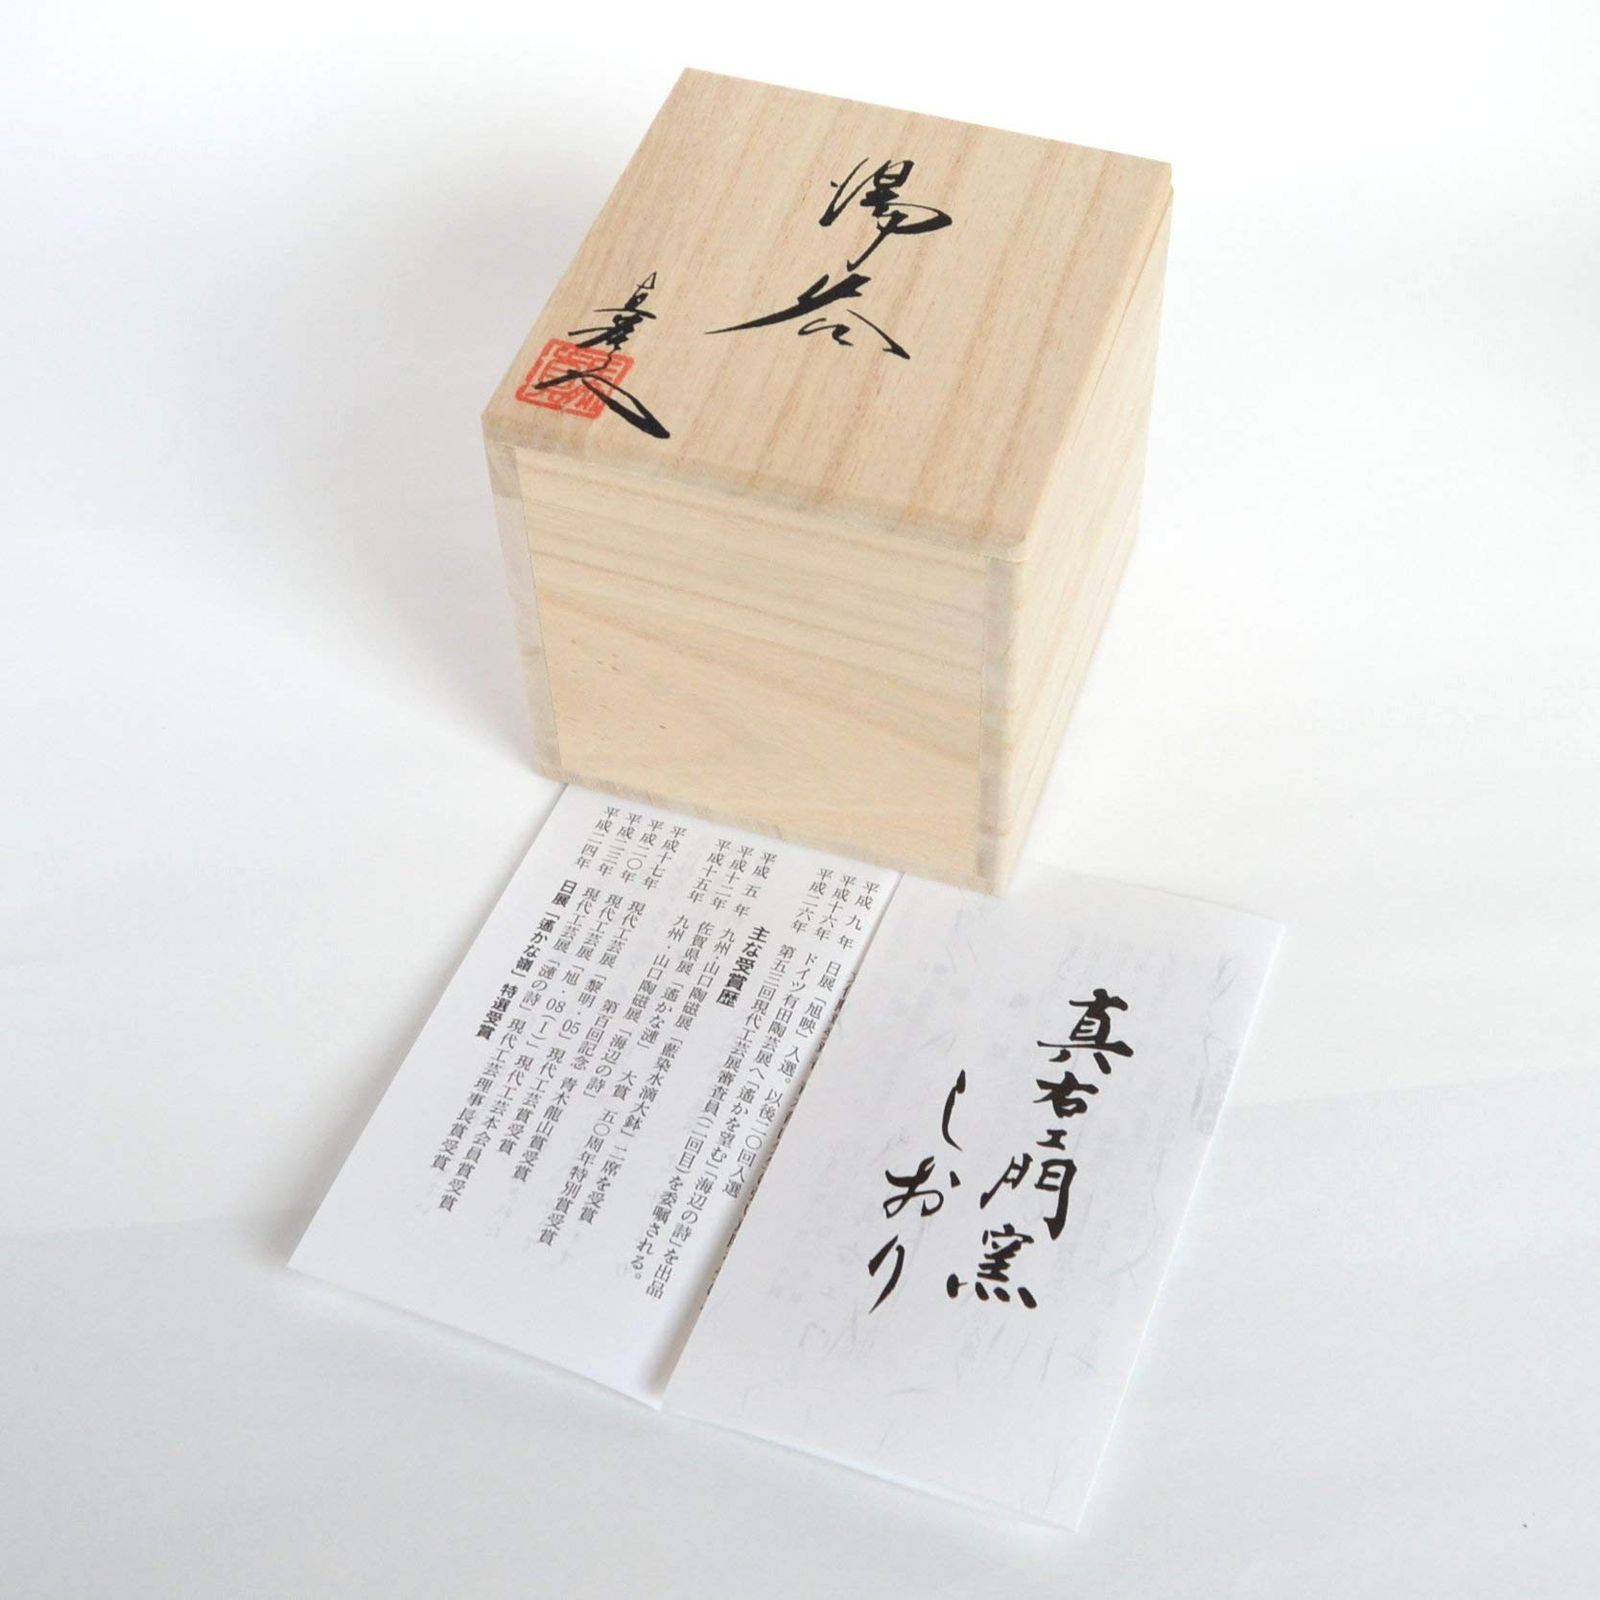 湯呑
真右エ門窯
しおり
平成九年　日展「旭映」入選。以後二〇回入選
平成十六年　ドイツ有田陶芸展へ「遙かを望む」「海辺の詩」を出品
平成二六年　第五三回現代工芸展審査員（二回目）を委嘱される。
主な受賞歴
平成五年　九州・山口陶磁展「藍染水滴大鉢」二席を受賞
平成十二年　佐賀県展「遙かな漣」大賞　五〇周年特別賞受賞
平成十五年　九州・山口陶磁展「海辺の詩」
第百回記念　青木龍山賞受賞
平成十七年　現代工芸展「黎明・05」現代工芸賞受賞
平成二〇年　現代工芸展「旭・08（Ⅰ）」現代工芸本会員賞受賞
平成二三年　現代工芸展「漣の詩」現代工芸理事長賞受賞
平成二四年　日展「遙かな嶺」特選受賞